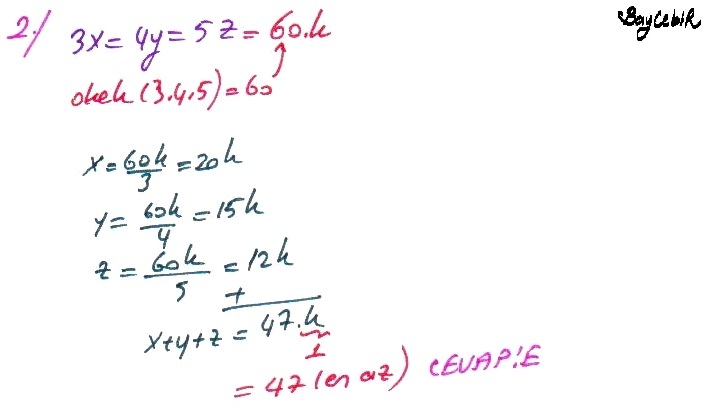 BayCebiR
2./ 3x = 4y = 5z = 60.k
okek (3.4.5) = 60
x = 60k/3 = 20k
y = 60k/4 = 15k
z = 60k/5 = 12k
+
x+y+z = 47.k
1
= 47 (en az) CEVAP:E